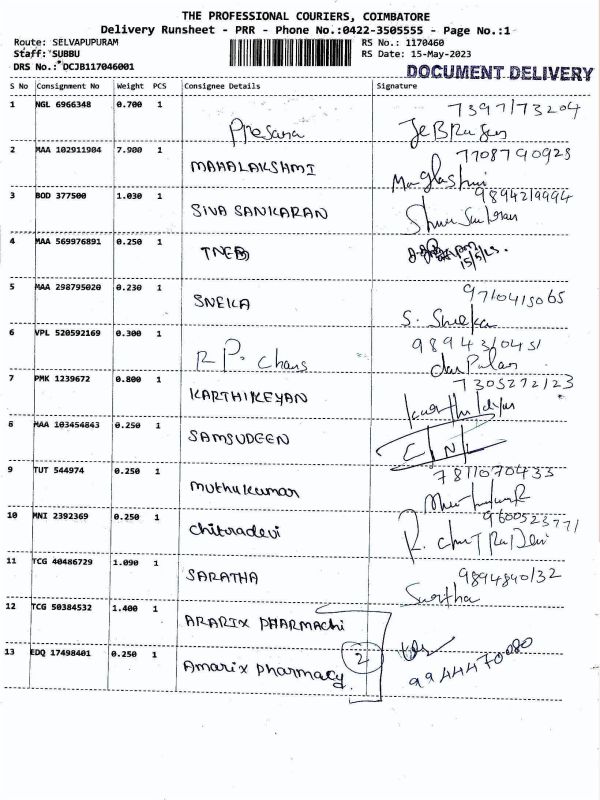 THE PROFESSIONAL COURIERS, COIMBATORE
Delivery Runsheet - PRR - Phone No.:0422-3505555 - Page No.:1
Route: SELVAPUPURAM RS No.: 1170460
Staff: SUBBU RS Date: 15-May-2023
DRS No.: DCJB117046001 DOCUMENT DELIVERY
S No Consignment No Weight PCS Consignee Details Signature
1 NGL 6966348 0.700 1 7397173204
Prasana
2 MAA 102911904 7.900 1 7708790925
MAHALAKSHMI
3 BOD 377500 1.030 1 9894219994
SIVA SANKARAN
4 MAA 569976891 0.250 1
TNEB 15/5/23.
5 MAA 298795020 0.230 1 9710415065
SNEKA S. Sneka
6 VPL 520592169 0.300 1 9894310451
R P. Chans
7 PMK 1239672 0.800 1 7305272123
KARTHIKEYAN
8 MAA 103454843 0.250 1
SAMSUDEEN
9 TUT 544974 0.250 1 7811070433
muthukumar
10 MNI 2392369 0.250 1 9600523771
chitradevi R. chitRaDevi
11 TCG 40486729 1.090 1 9894840132
SARATHA
12 TCG 50384532 1.400 1
ARARIX PHARMACHi
13 EDQ 17498401 0.250 1 2
Amarix pharmacy. 9944470080